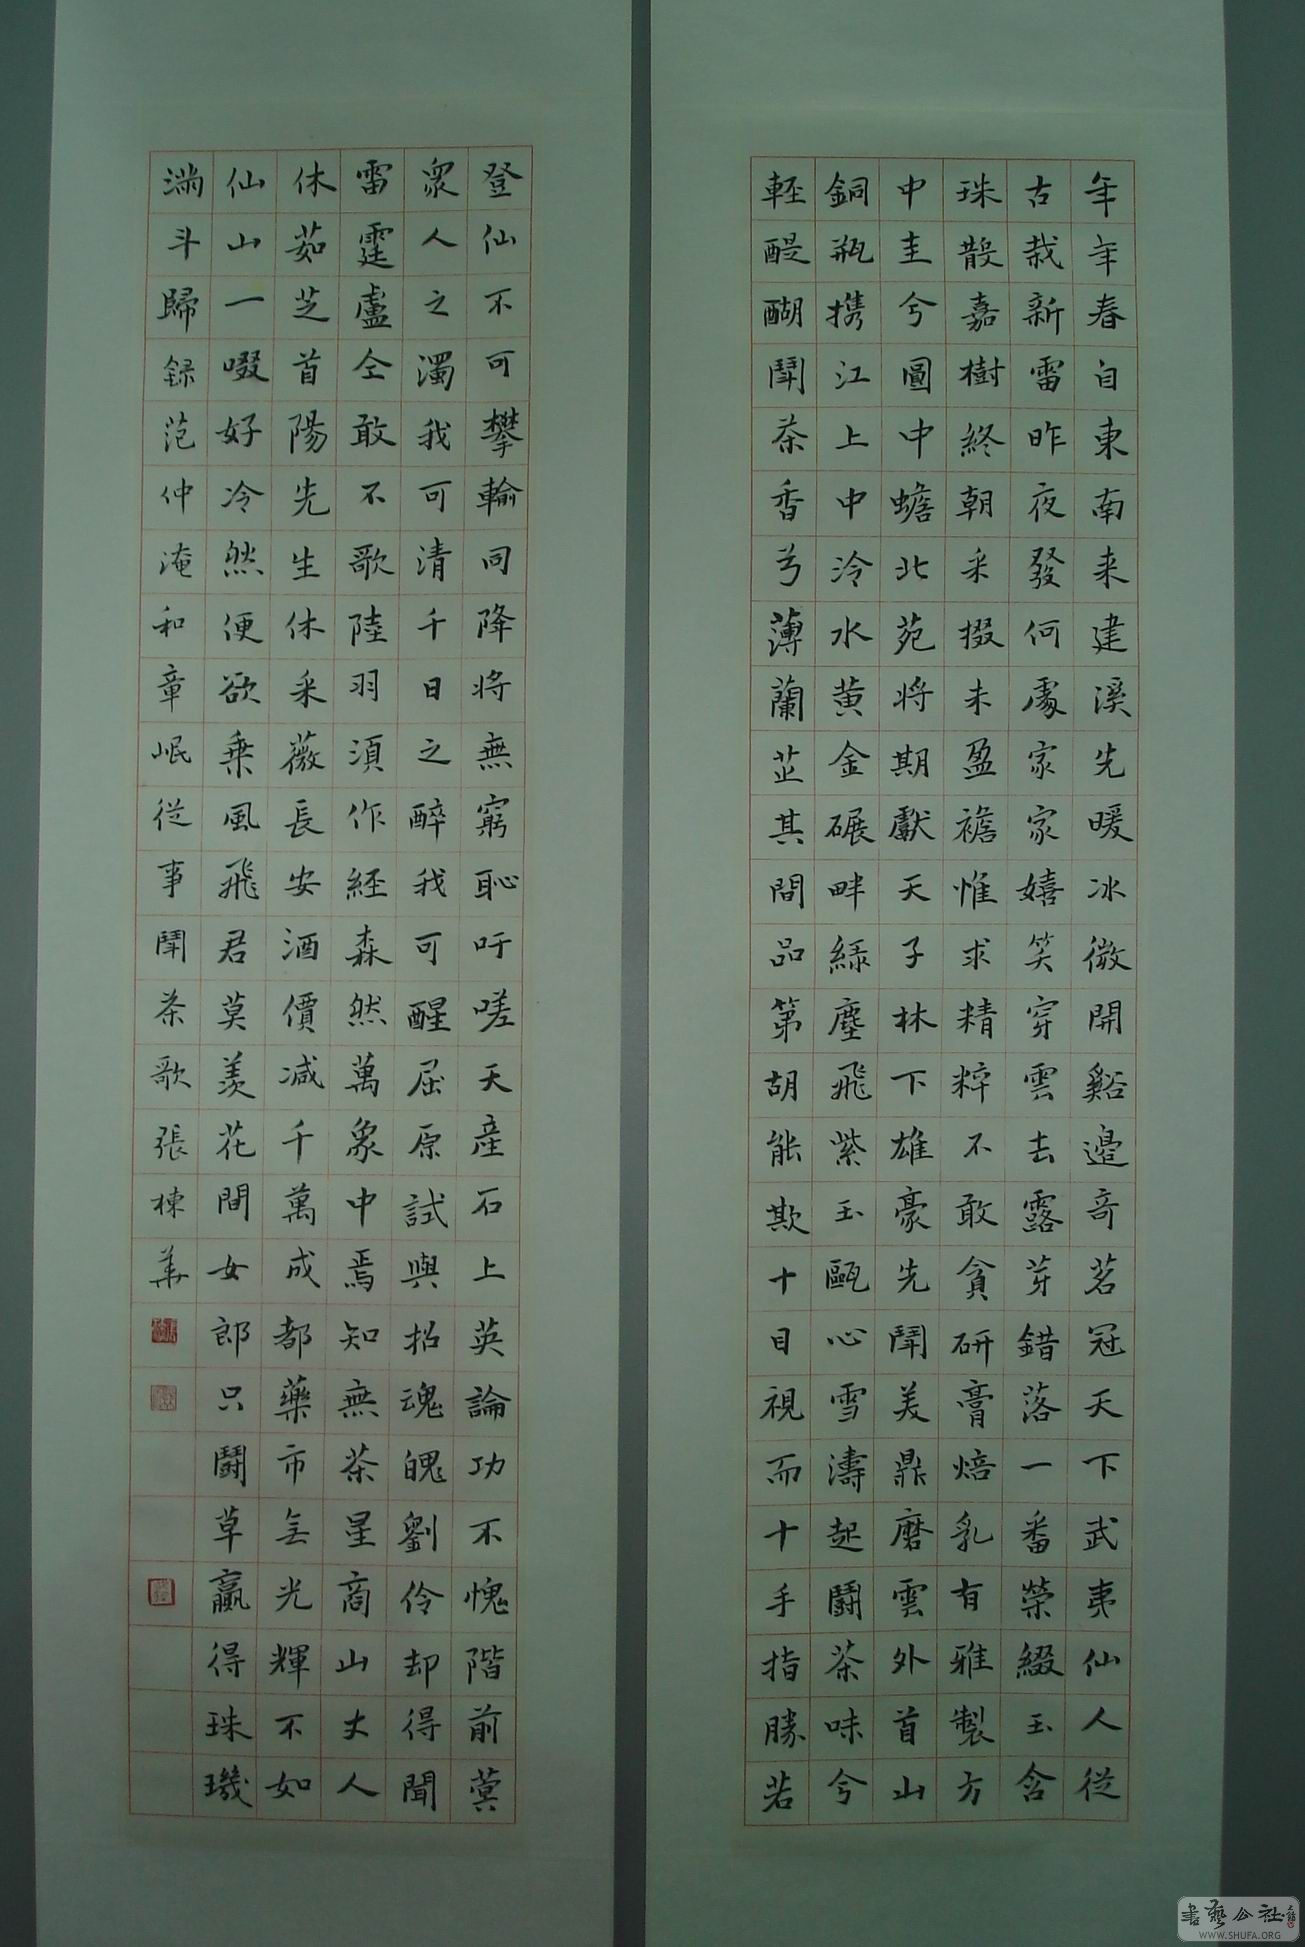 年年春自東南来建溪先暖冰微開谿邉奇茗冠天下武夷仙人従
古栽新雷昨夜發何處家家嬉笑穿雲去露芽錯落一番榮綴玉含
珠散嘉樹終朝采掇未盈襜惟求精粹不敢貪研膏焙乳有雅製方
中圭兮圓中蟾北苑将期獻天子林下雄豪先鬪美鼎磨雲外首山
銅瓶携江上中泠水黄金碾畔緑塵飛紫玉甌心雪濤起鬪茶味兮
輕醍醐鬪茶香兮薄蘭芷其間品第胡能欺十目視而十手指勝若
登仙不可攀輸同降将無窮恥吁嗟天産石上英論功不愧階前蓂
衆人之濁我可清千日之醉我可醒屈原試與招魂魄劉伶却得聞
雷霆盧仝敢不歌陸羽須作経森然萬象中焉知無茶星商山丈人
休茹芝首陽先生休采薇長安酒價減千萬成都藥市無光輝不如
仙山一啜好泠然便欲乗風飛君莫羨花間女郎只鬪草贏得珠璣
満斗歸録范仲淹和章岷從事鬪茶歌張棟華
書藝公社
WWW.SHUFA.ORG